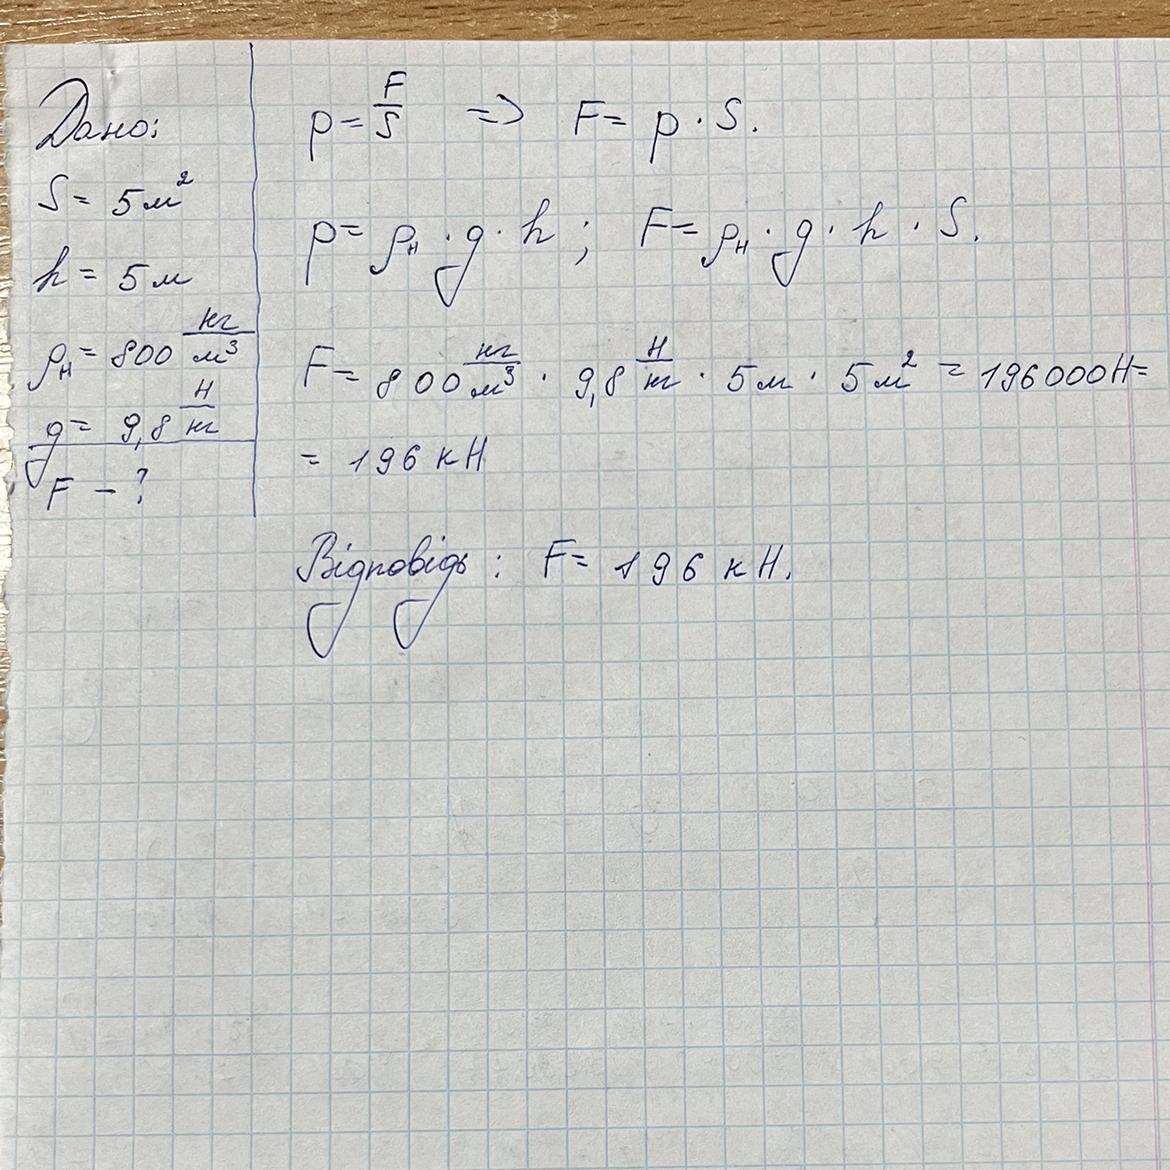 Дано:
S = 5 м²
h = 5 м
ρн = 800 кг/м³
g = 9,8 Н/кг
F – ?
p = F/S => F = p · S.
p = ρн · g · h ; F = ρн · g · h · S.
F = 800 кг/м³ · 9,8 Н/кг · 5 м · 5 м² = 196000 Н =
= 196 кН
Відповідь: F = 196 кН.